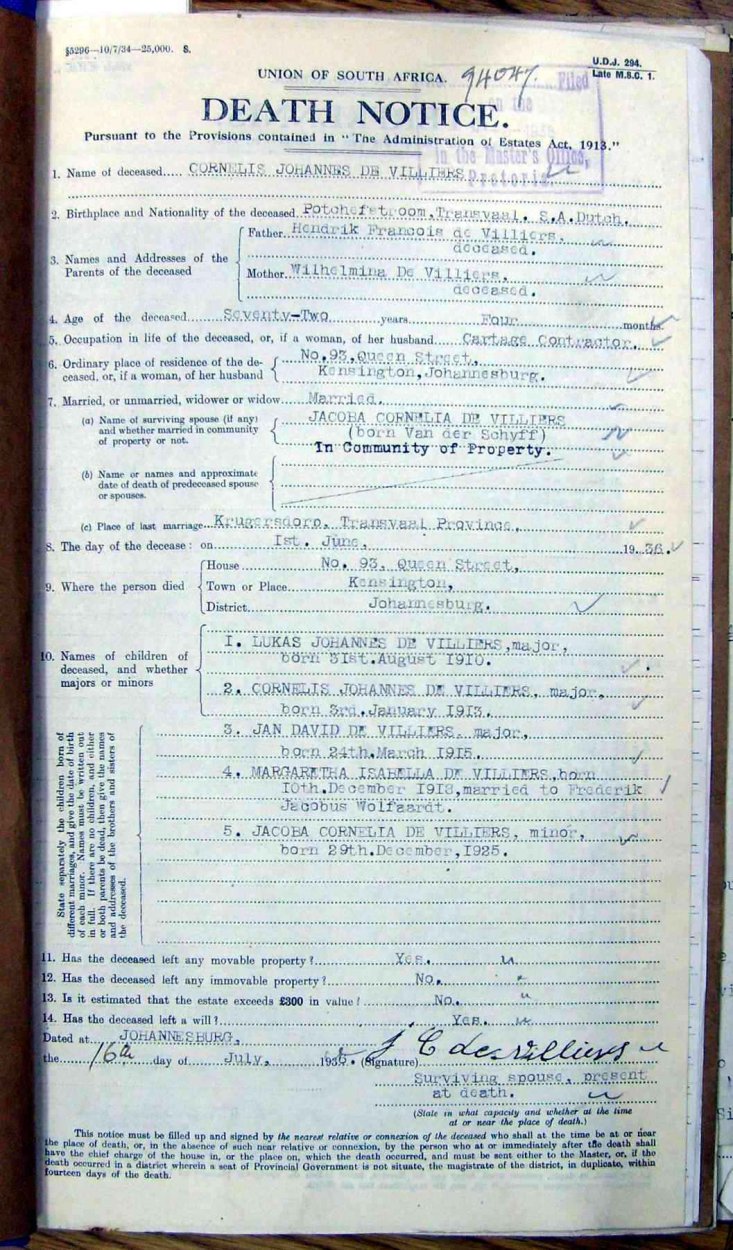 §5296—10/7/34—25,000. S.
U.D.J. 294.
Late M.S.C. 1.
UNION OF SOUTH AFRICA.
94047.
Filed
on the
In the Master's Office,
Pretoria
DEATH NOTICE.
Pursuant to the Provisions contained in "The Administration of Estates Act, 1913."
1. Name of deceased.... CORNELIS JOHANNES DE VILLIERS
2. Birthplace and Nationality of the deceased Potchefstroom, Transvaal. S.A.Dutch.
3. Names and Addresses of the Parents of the deceased
Father Hendrik Francois de Villiers,
deceased.
Mother Wilhelmina De Villiers,
deceased.
4. Age of the deceased Seventy-Two years Four months.
5. Occupation in life of the deceased, or, if a woman, of her husband Cartage Contractor.
6. Ordinary place of residence of the de-
ceased, or, if a woman, of her husband
No.93, Queen Street,
Kensington, Johannesburg.
7. Married, or unmarried, widower or widow Married.
(a) Name of surviving spouse (if any)
and whether married in community
of property or not.
JACOBA CORNELIA DE VILLIERS
(born Van der Schyff)
In Community of Property.
(b) Name or names and approximate
date of death of predeceased spouse
or spouses.
(c) Place of last marriage Krugersdorp, Transvaal Province,
8. The day of the decease: on 1st. June, 1936.
9. Where the person died
House No. 93, Queen Street,
Town or Place Kensington,
District Johannesburg.
10. Names of children of
deceased, and whether
majors or minors
1. LUKAS JOHANNES DE VILLIERS, major,
born 31st. August 1910.
2. CORNELIS JOHANNES DE VILLIERS, major,
born 3rd. January 1913.
3. JAN DAVID DE VILLIERS, major,
born 24th. March 1915.
4. MARGARETHA ISABELLA DE VILLIERS, born
10th. December 1918, married to Frederik
Jacobus Wolfaardt.
5. JACOBA CORNELIA DE VILLIERS, minor,
born 29th. December, 1925.
State separately the children born of
different marriages, and give the date of birth
of each minor. Names must be written out
in full. If there are no children, and either
or both parents be dead, then give the names
and addresses of the brothers and sisters of
the deceased.
11. Has the deceased left any movable property? Yes.
12. Has the deceased left any immovable property? No.
13. Is it estimated that the estate exceeds £300 in value? No.
14. Has the deceased left a will? Yes.
Dated at JOHANNESBURG,
the 16th day of July, 1936. (Signature) J C de Villiers
Surviving spouse, present
at death.
(State in what capacity and whether at the time
at or near the place of death.)
This notice must be filled up and signed by the nearest relative or connexion of the deceased who shall at the time be at or near
the place of death, or, in the absence of such near relative or connexion, by the person who at or immediately after the death shall
have the chief charge of the house in, or the place on, which the death occurred, and must be sent either to the Master, or, if the
death occurred in a district wherein a seat of Provincial Government is not situate, the magistrate of the district, in duplicate, within
fourteen days of the death.